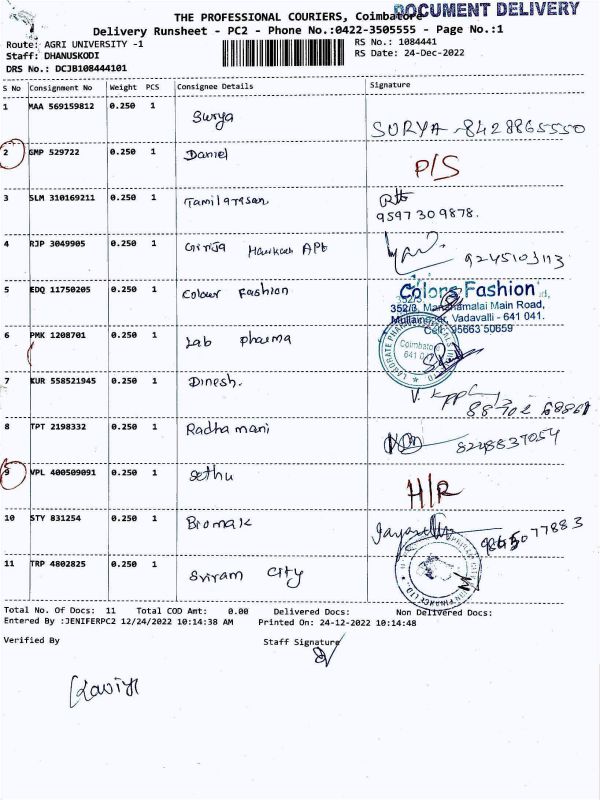 DOCUMENT DELIVERY
THE PROFESSIONAL COURIERS, Coimbatore
Delivery Runsheet - PC2 - Phone No.:0422-3505555 - Page No.:1
Route: AGRI UNIVERSITY -1 RS No.: 1084441
Staff: DHANUSKODI RS Date: 24-Dec-2022
DRS No.: DCJB108444101
S No Consignment No Weight PCS Consignee Details Signature
1 MAA 569159812 0.250 1 Surya SURYA - 8428865550
2 GMP 529722 0.250 1 Daniel P/S
3 SLM 310169211 0.250 1 Tamilarasan
9597309878.
4 RJP 3049905 0.250 1 Girija Apt
5 EDQ 11750205 0.250 1 Colour Fashion Colors Fashion
352/3, Maruthamalai Main Road,
Vadavalli - 641 041.
Cell: 95663 50659
6 PMK 1208701 0.250 1 Lab pharma Coimbatore
7 KUR 558521945 0.250 1 Dinesh.
8 TPT 2198332 0.250 1 Radha mani 8248837054
9 VPL 400509091 0.250 1 Sethu H/R
10 STY 831254 0.250 1 Bromak
11 TRP 4802825 0.250 1 Sriram City
Total No. Of Docs: 11 Total COD Amt: 0.00 Delivered Docs: Non Delivered Docs:
Entered By :JENIFERPC2 12/24/2022 10:14:38 AM Printed On: 24-12-2022 10:14:48
Verified By Staff Signature
Kaviya